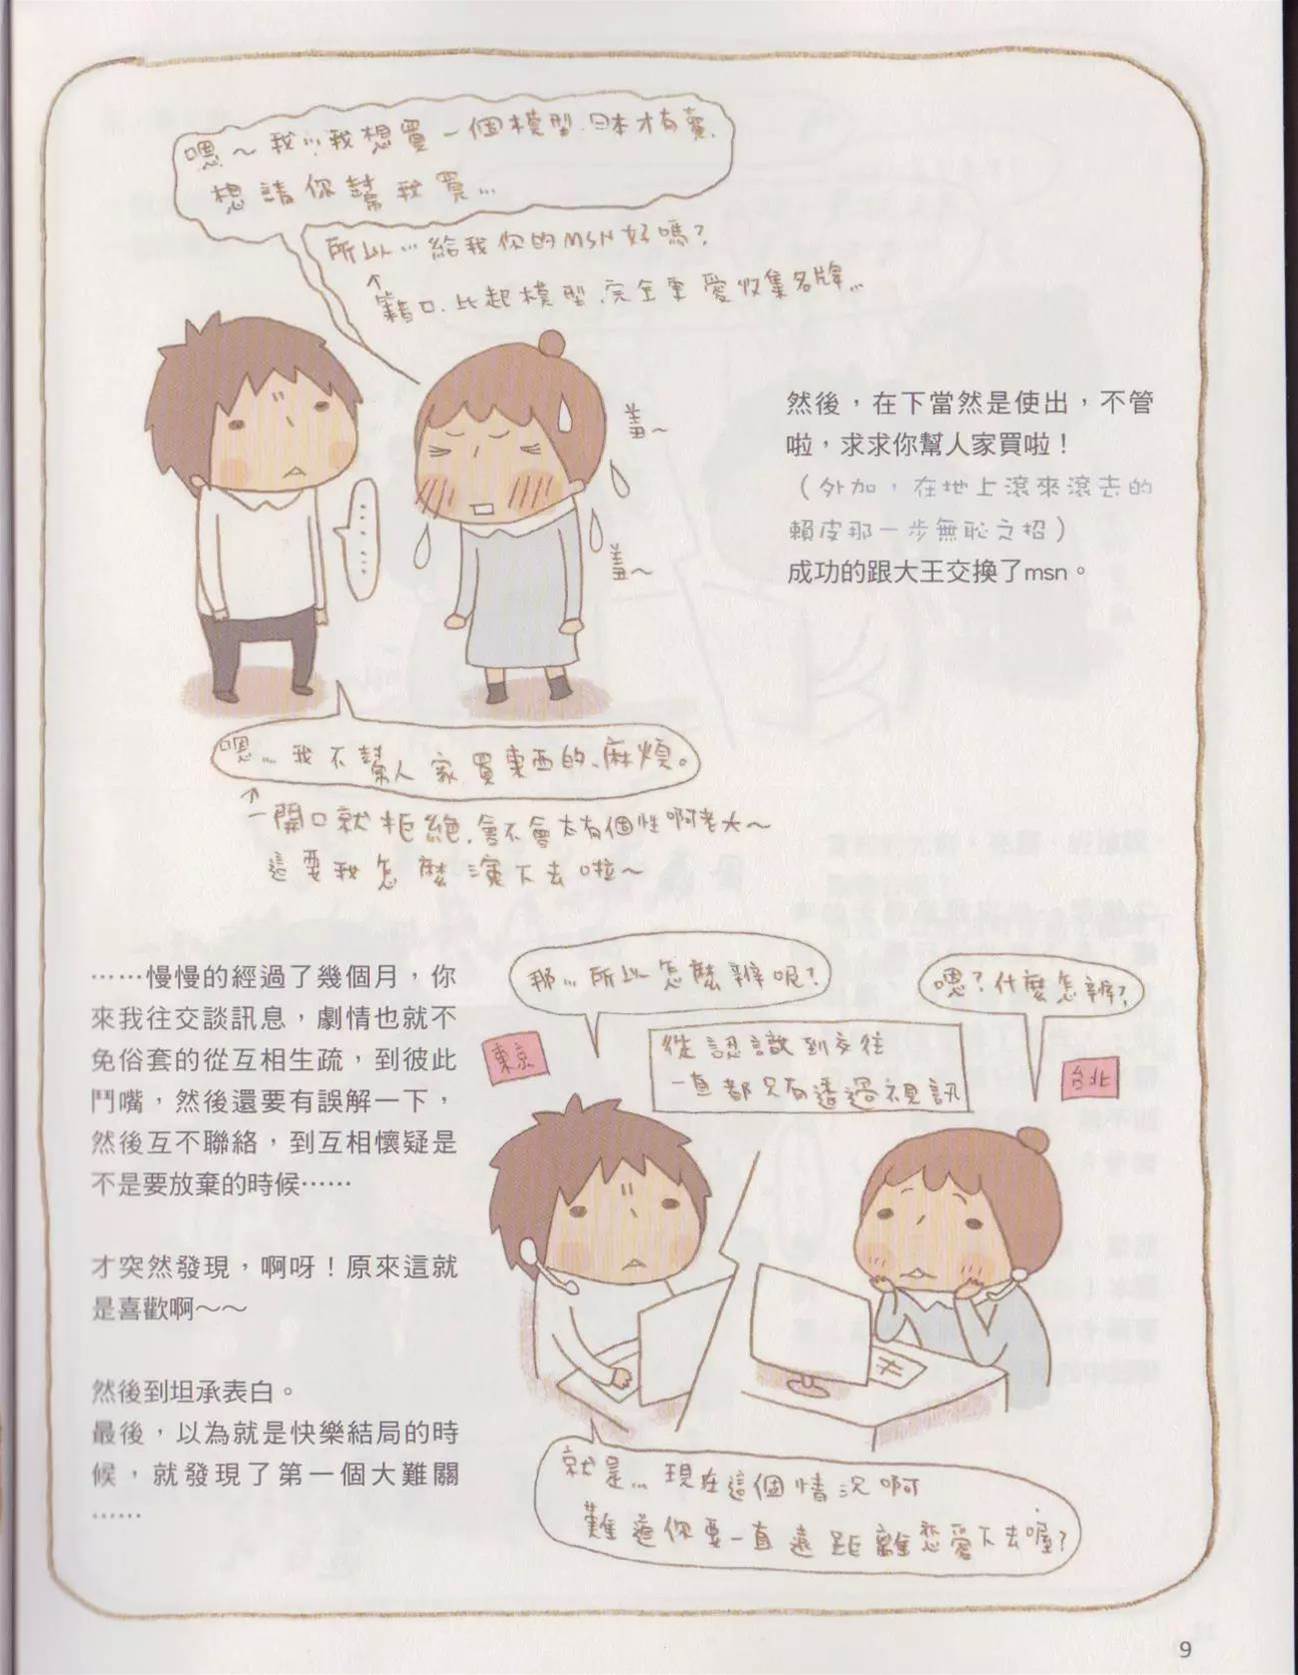 嗯～我…我想買一個模型.日本才有賣.
想請你幫我買…
所以…給我你的MSN好嗎？
藉口.比起模型.完全更愛收集名牌…
羞～
羞～
…… ……
然後，在下當然是使出，不管
啦，求求你幫人家買啦！
（外加，在地上滾來滾去的
賴皮那一步無恥之招）
成功的跟大王交換了msn。
嗯…我不幫人家買東西的、麻煩。
一開口就拒絕.會不會太有個性啊老大～
這要我怎麼演下去啦～
……慢慢的經過了幾個月，你
來我往交談訊息，劇情也就不
免俗套的從互相生疏，到彼此
鬥嘴，然後還要有誤解一下，
然後互不聯絡，到互相懷疑是
不是要放棄的時候……
才突然發現，啊呀！原來這就
是喜歡啊～～
然後到坦承表白。
最後，以為就是快樂結局的時
候，就發現了第一個大難關
……
那…所以怎麼辦呢？
嗯？什麼怎辦？
東京
從認識到交往
一直都只有透過視訊
台北
就是…現在這個情況啊
難道你要一直遠距離戀愛下去喔？
9